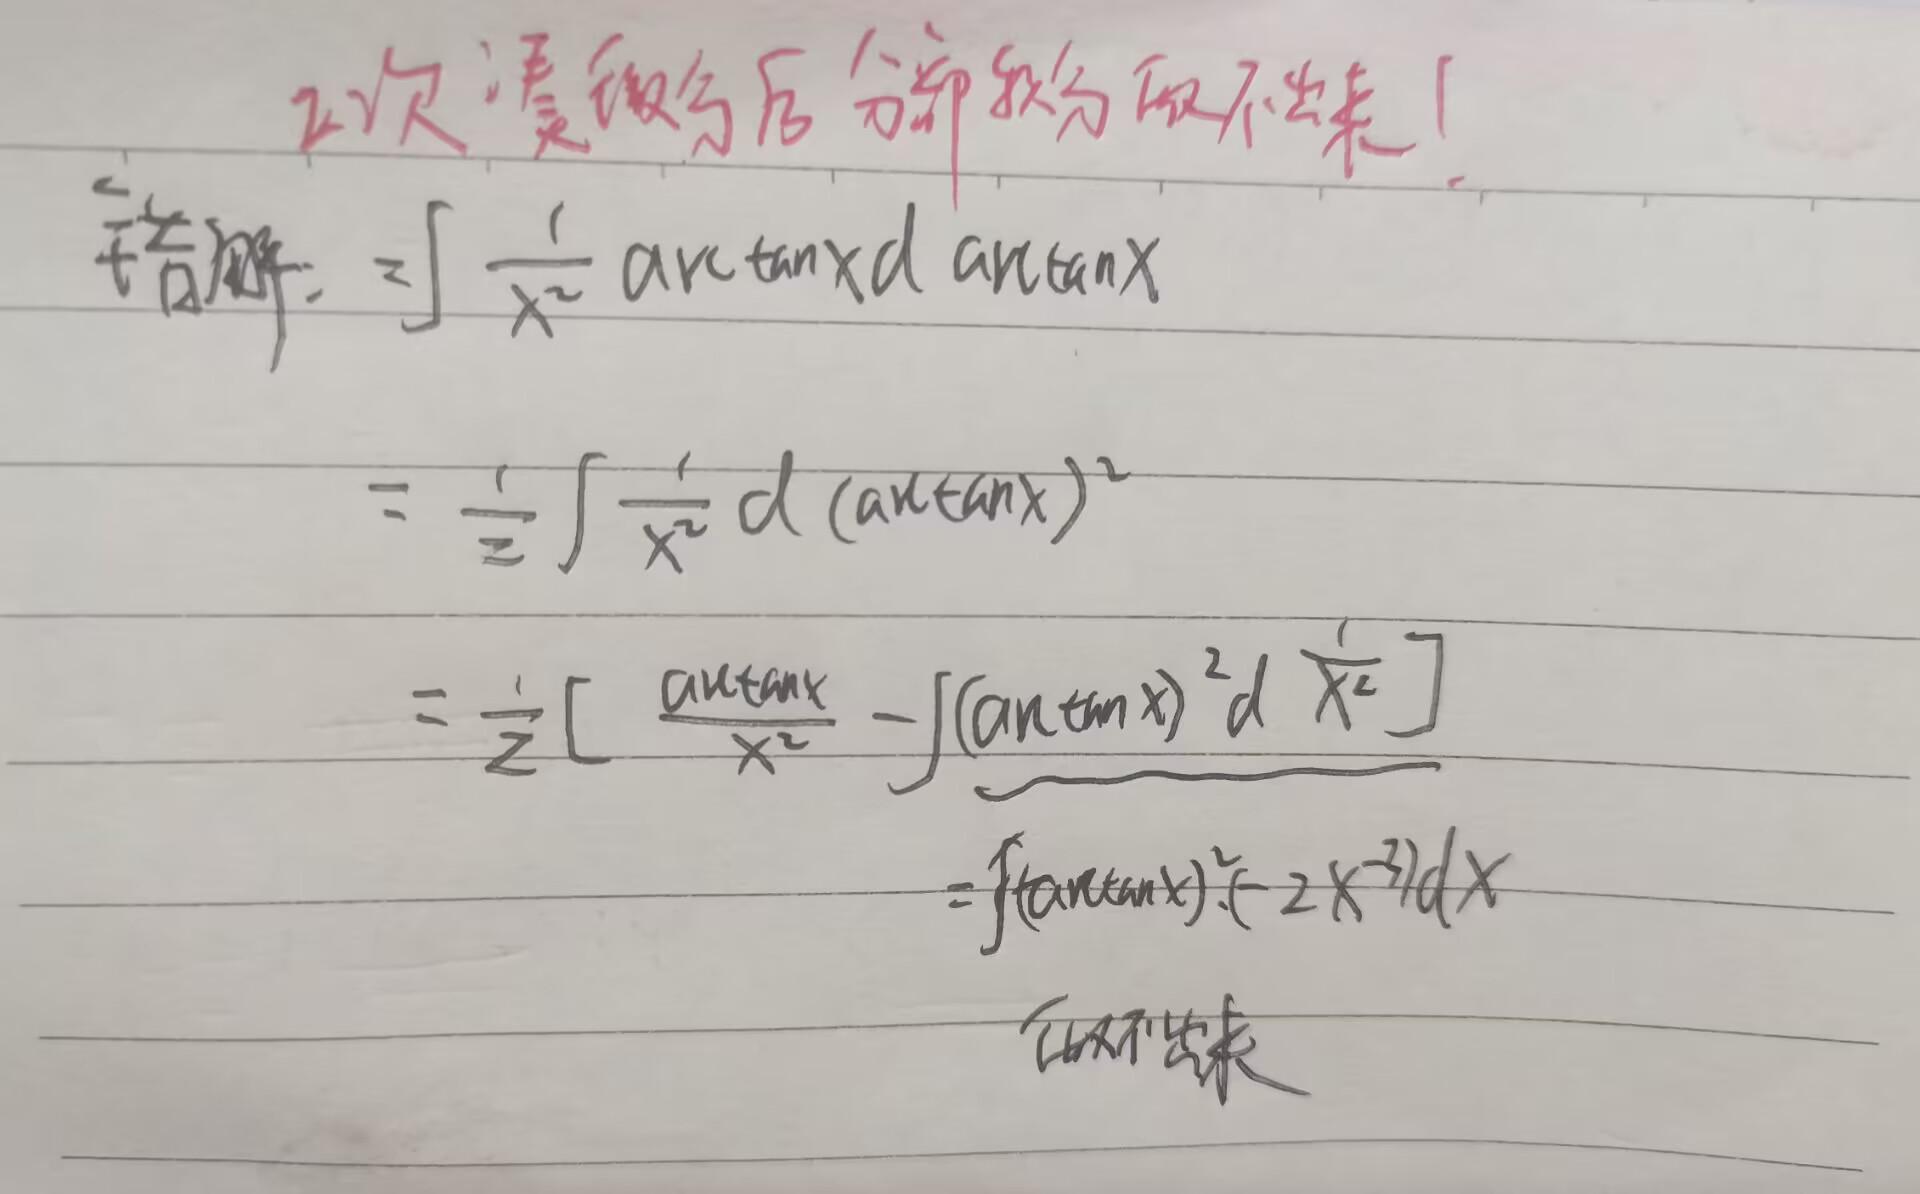 2次凑微分后分部积分做不出来!
错解: = ∫ 1/x² arctanx d arctanx
= 1/2 ∫ 1/x² d (arctanx)²
= 1/2 [ arctanx/x² - ∫(arctanx)² d 1/x² ]
= ∫(arctanx)²·(-2x⁻³)dx
做不出来